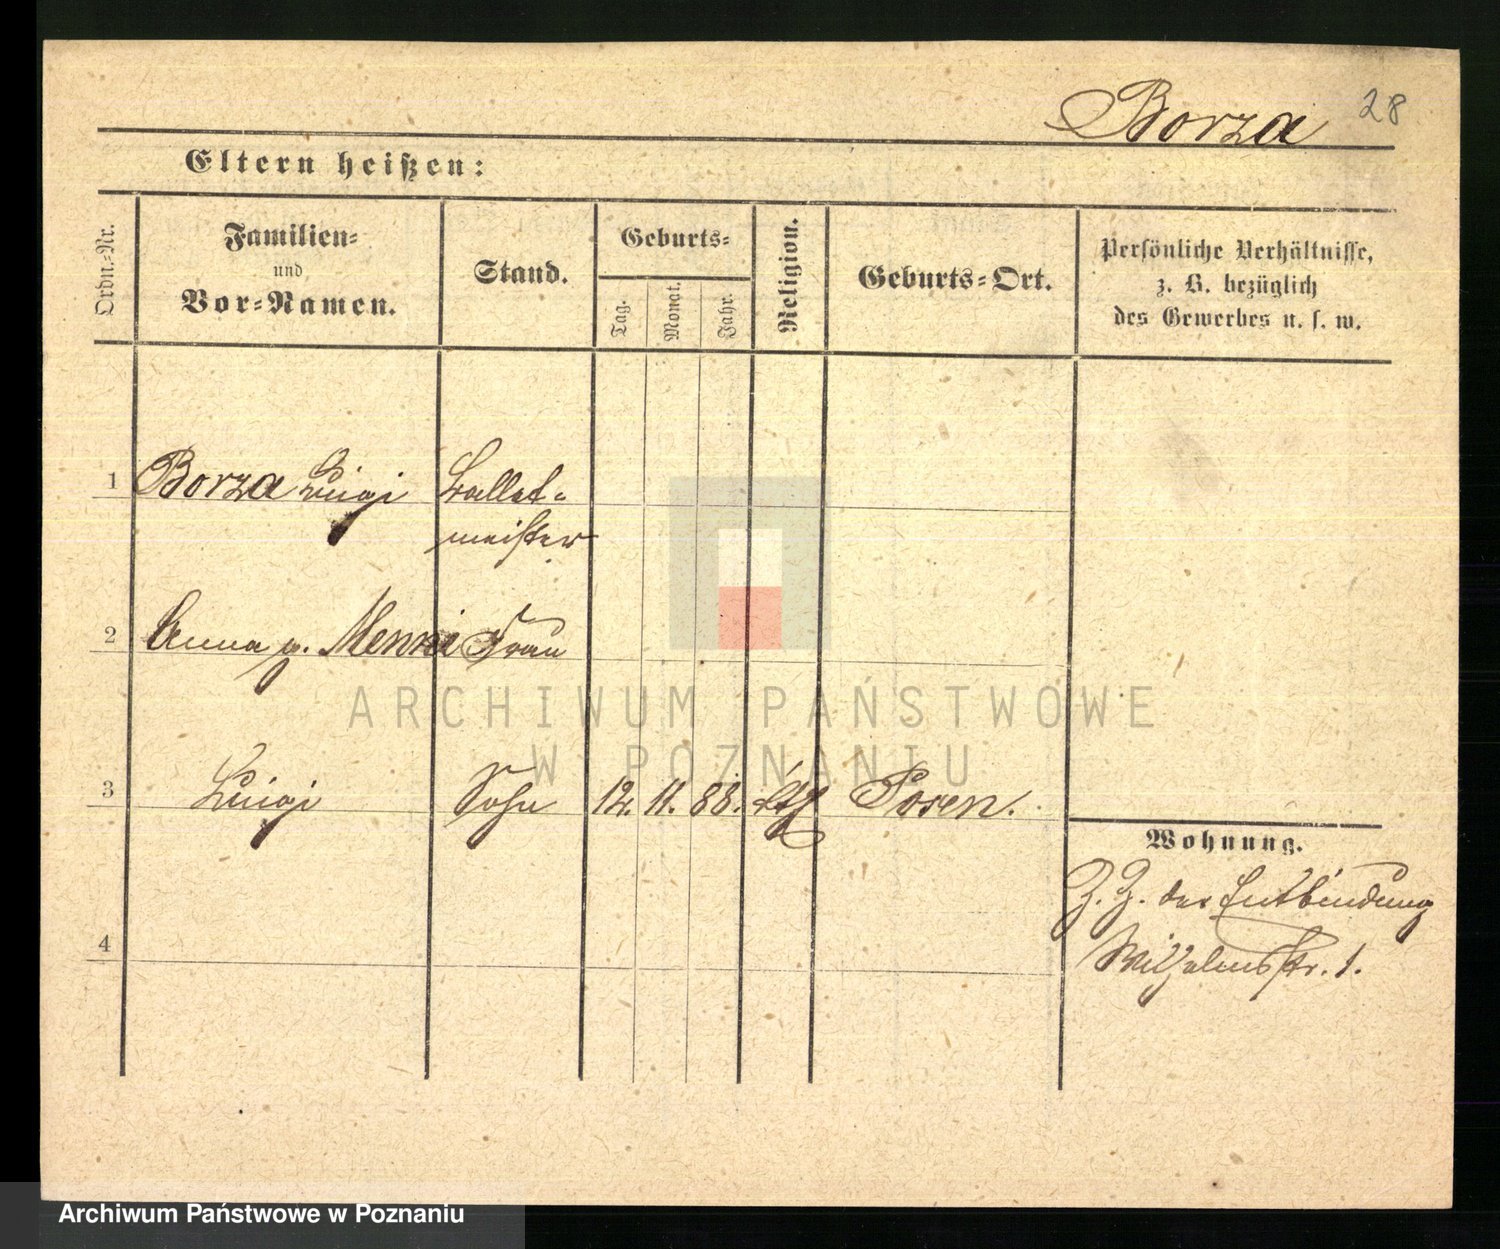 Borza 28
Eltern heißen:
Ordn.-Nr.
Familien-
und
Vor-Namen.
Stand.
Geburts-
Tag.
Monat.
Jahr.
Religion.
Geburts-Ort.
Persönliche Verhältnisse,
z. B. bezüglich
des Gewerbes u. s. w.
1 Borza Luigi Ballet-
meister
2 Anna g. Menni Frau
3 Luigi Sohn 12. 11. 88. kth Posen.
Wohnung.
Z. Z. der Entbindung
Wilhelmstr. 1.
4
ARCHIWUM PAŃSTWOWE
W POZNANIU
Archiwum Państwowe w Poznaniu